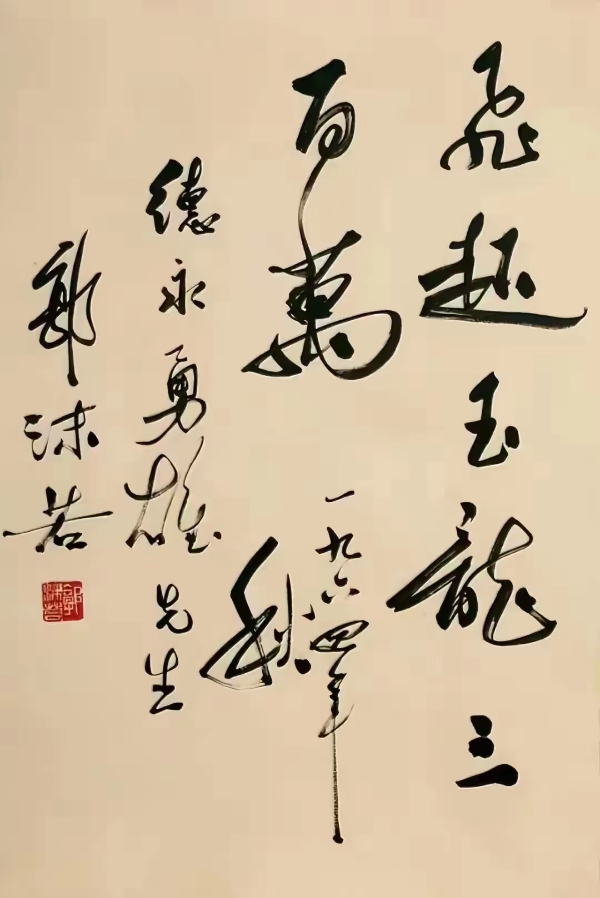 飛起玉龍三
百萬
一九六四年
秋
德永勇雄先生
郭沫若
郭沫若